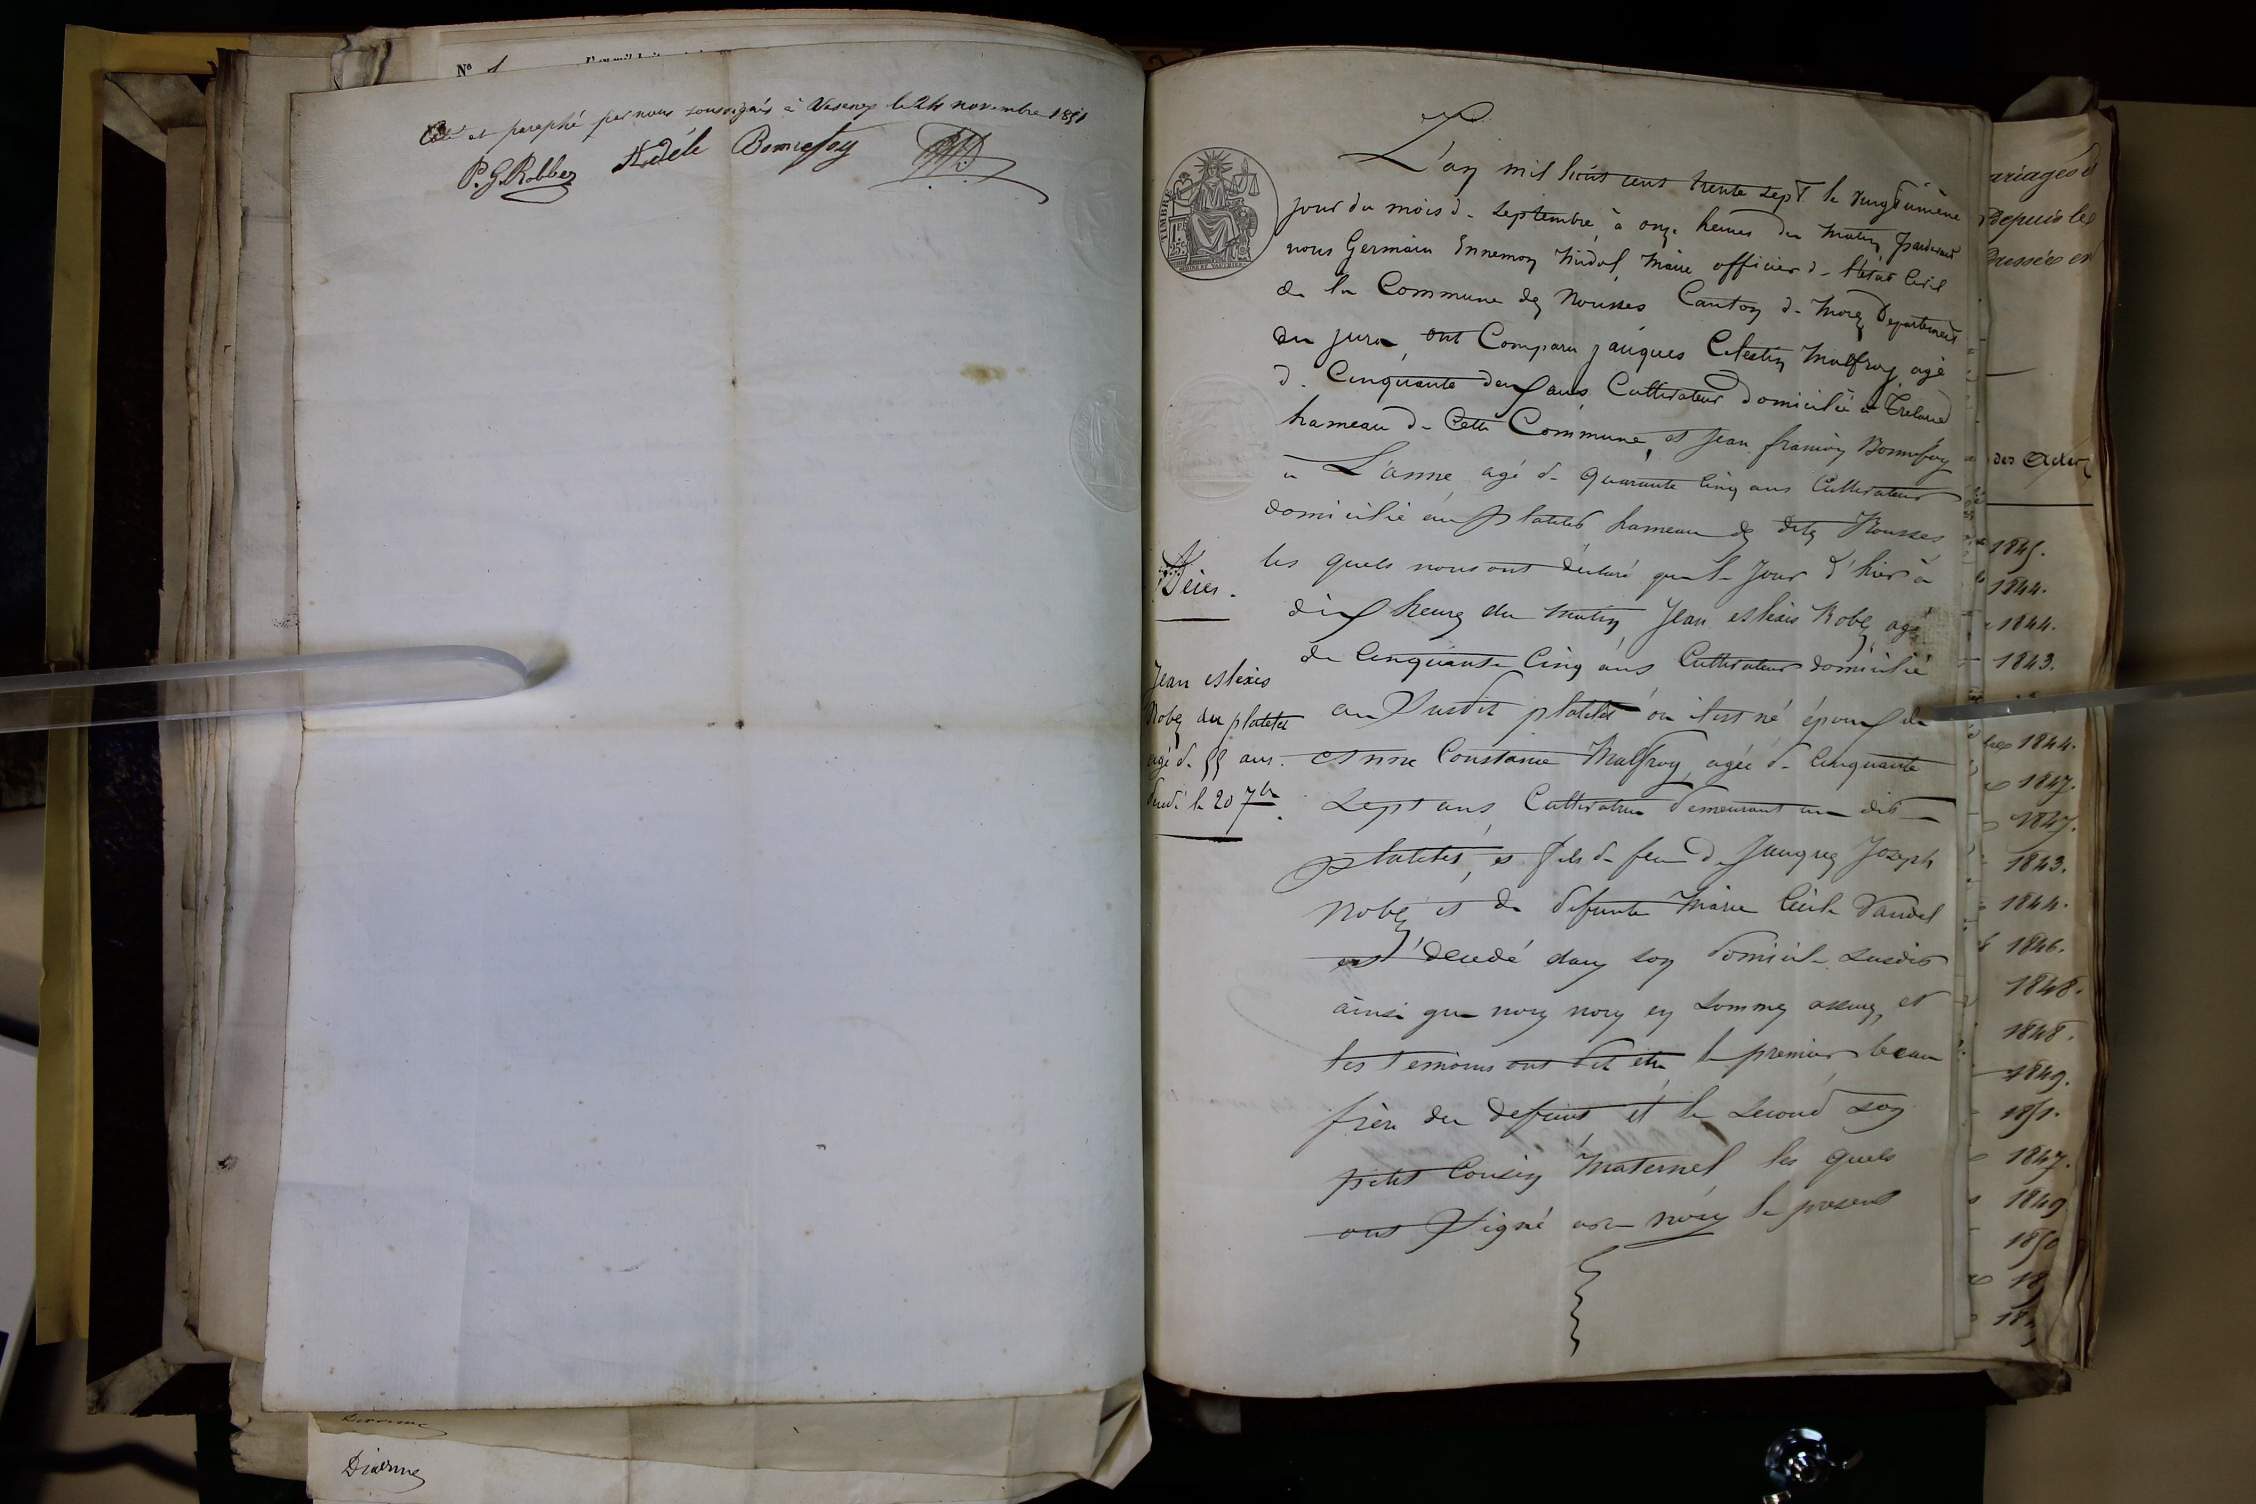 Nº 1
Coté et paraphé par nous soussignés à Vesenex le 24 novembre 1851
P. G. Robbez Adèle Bonnefoy
TIMBRE
L'an mil huit cent trente sept le vingtunième
jour du mois de septembre, à onze heures du matin, pardevant
nous Germain Ennemon Midol, Maire officier de l'état Civil
de la Commune des Rousses Canton de Morez Departement
du jura, ont Comparu jacques Celestin Malfroy agé
de Cinquante deux ans Cultivateur domicilié à Trelarce
hameau de Cette Commune, et Jean françois Bonnefoy
à L'anne agé de quarante Cinq ans Cultivateur
domicilié au platelet hameau des dites Rousses
les quels nous ont déclaré que le jour d'hier à
dix heures du matin Jean Alexis Robez agé
de Cinquante Cinq ans Cultivateur domicilié
au Susdit platelet où il est né époux de
Anne Constance Malfroy, agée de Cinquante
Sept ans, Cultivatrice demeurant au dit
platelet, et fils de feu de Jacques Joseph
Robez et de defunte Marie Cécile Vandel
est décedé dans son domicile susdit
ainsi que nous nous en sommes assurés, et
les temoins ont dit être le premier beau
frère du defunt et le second son
petit Cousin Maternel les quels
ont Signé avec nous le present
Décès.
Jean Alexis
Robez du platelet
agé de 55 ans.
décédé le 20 7bre
ariages et
Depuis les
dressées en
des Actes
1845.
1844.
1844.
1843.
1844.
1847.
1847.
1843.
1844.
1846.
1848.
1848.
1849.
1851.
1847.
1849
1850
18
18
Divonne